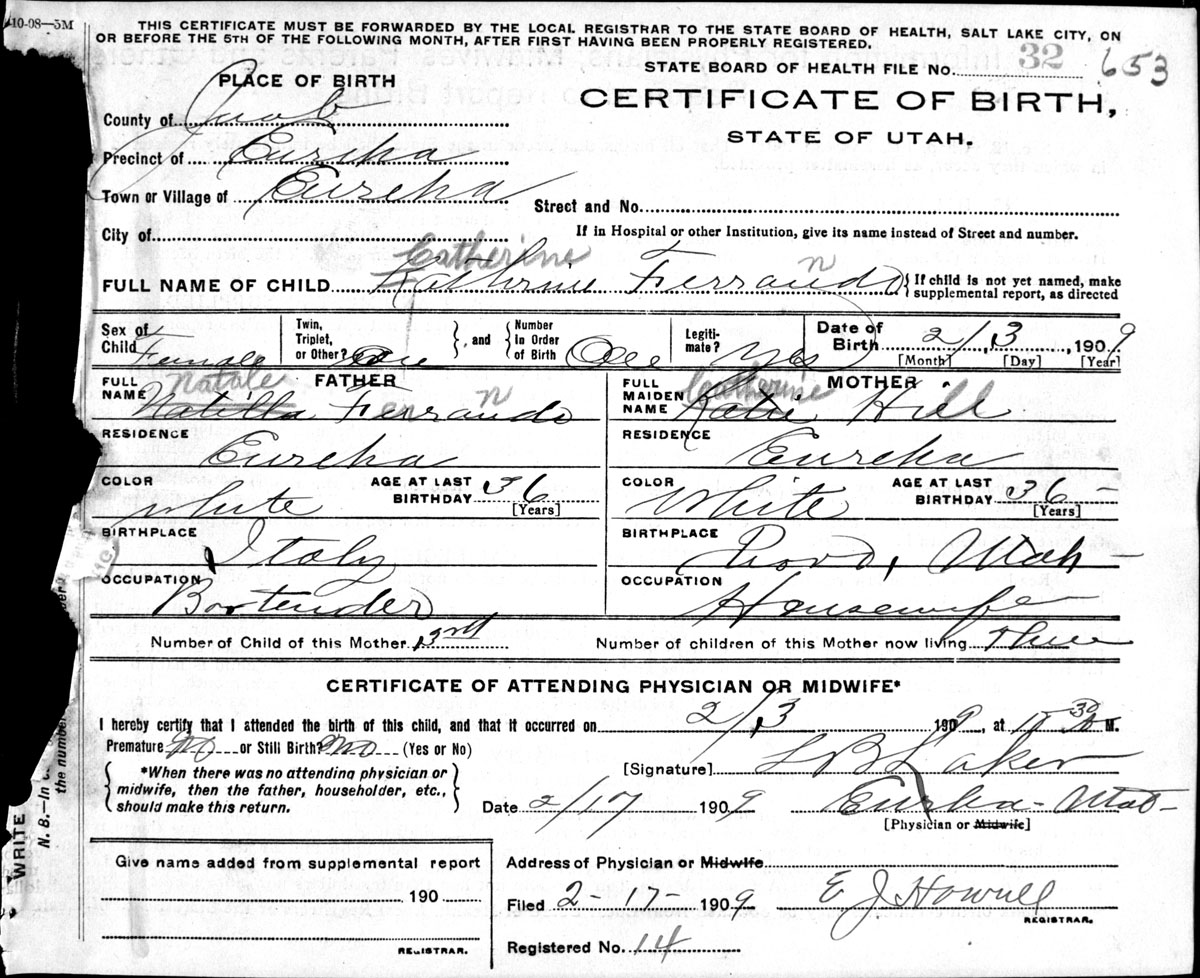 10-08—5M
THIS CERTIFICATE MUST BE FORWARDED BY THE LOCAL REGISTRAR TO THE STATE BOARD OF HEALTH, SALT LAKE CITY, ON
OR BEFORE THE 5TH OF THE FOLLOWING MONTH, AFTER FIRST HAVING BEEN PROPERLY REGISTERED.
STATE BOARD OF HEALTH FILE No. 32 653
PLACE OF BIRTH
CERTIFICATE OF BIRTH,
STATE OF UTAH.
County of Juab
Precinct of Eureka
Town or Village of Eureka
Street and No.
City of
If in Hospital or other Institution, give its name instead of Street and number.
Catherine
FULL NAME OF CHILD Katherine Ferrando n { If child is not yet named, make
supplemental report, as directed
Sex of Child Female
Twin, Triplet, or Other? One } and { Number in Order of Birth One
Legiti-mate? Yes
Date of Birth 2/3, 1909
[Month] [Day] [Year]
FULL NAME FATHER
Natale
Natilla Ferrando n
FULL MAIDEN NAME MOTHER
Catherine
Katie Hill
RESIDENCE Eureka
RESIDENCE Eureka
COLOR White AGE AT LAST BIRTHDAY 36 [Years]
COLOR White AGE AT LAST BIRTHDAY 36 - [Years]
BIRTHPLACE Italy
BIRTHPLACE Provo, Utah
OCCUPATION Bartender
OCCUPATION Housewife
Number of Child of this Mother 3rd
Number of children of this Mother now living three
CERTIFICATE OF ATTENDING PHYSICIAN OR MIDWIFE*
I hereby certify that I attended the birth of this child, and that it occurred on 2/3 1909, at 30 M.
Premature No or Still Birth? No (Yes or No)
{ *When there was no attending physician or
midwife, then the father, householder, etc.,
should make this return. }
[Signature] Laker
Date 2/17 1909 Eureka - Utah -
[Physician or Midwife]
Give name added from supplemental report
190
REGISTRAR.
Address of Physician or Midwife
Filed 2-17- 1909 E J Howell
REGISTRAR.
Registered No. 14
WRITE
N. B.—In c
the number